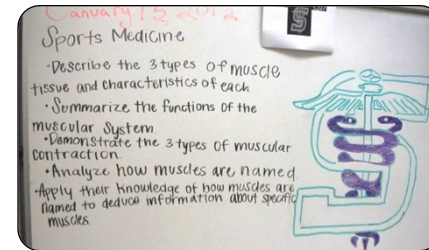 January 13, 2012
Sports Medicine
·Describe the 3 types of muscle
tissue and characteristics of each
·Summarize the functions of the
muscular System.
·Demonstrate the 3 types of muscular
contraction.
·Analyze how muscles are named
·Apply their knowledge of how muscles are
named to deduce information about specific
muscles.